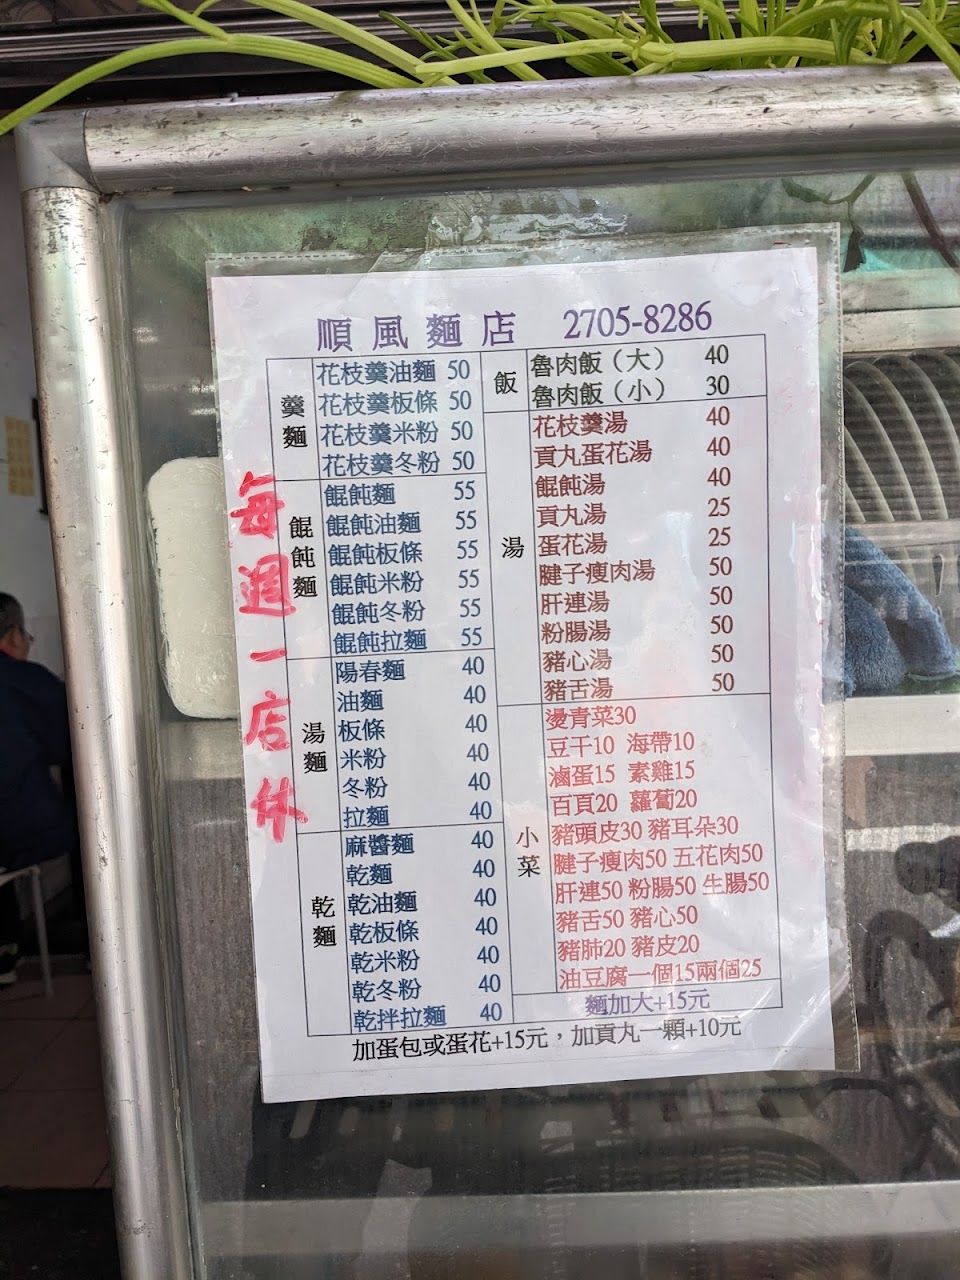 順風麵店 2705-8286
羹麵
花枝羹油麵 50
花枝羹板條 50
花枝羹米粉 50
花枝羹冬粉 50
餛飩麵
餛飩麵 55
餛飩油麵 55
餛飩板條 55
餛飩米粉 55
餛飩冬粉 55
餛飩拉麵 55
湯麵
陽春麵 40
油麵 40
板條 40
米粉 40
冬粉 40
拉麵 40
乾麵
麻醬麵 40
乾麵 40
乾油麵 40
乾板條 40
乾米粉 40
乾冬粉 40
乾拌拉麵 40
飯
魯肉飯（大） 40
魯肉飯（小） 30
湯
花枝羹湯 40
貢丸蛋花湯 40
餛飩湯 40
貢丸湯 25
蛋花湯 25
腱子瘦肉湯 50
肝連湯 50
粉腸湯 50
豬心湯 50
豬舌湯 50
小菜
燙青菜30
豆干10 海帶10
滷蛋15 素雞15
百頁20 蘿蔔20
豬頭皮30 豬耳朵30
腱子瘦肉50 五花肉50
肝連50 粉腸50 生腸50
豬舌50 豬心50
豬肺20 豬皮20
油豆腐一個15兩個25
麵加大+15元
加蛋包或蛋花+15元，加貢丸一顆+10元
每週一店休